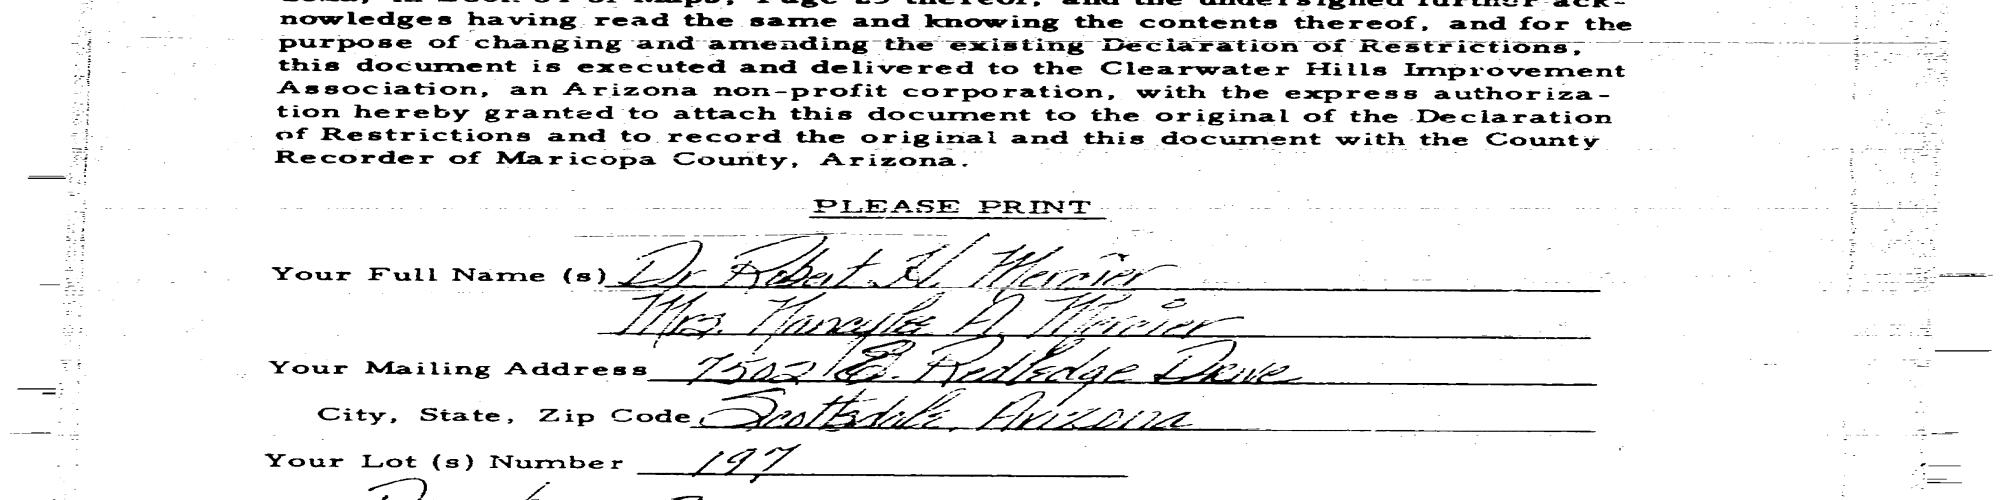 nowledges having read the same and knowing the contents thereof, and for the
purpose of changing and amending the existing Declaration of Restrictions,
this document is executed and delivered to the Clearwater Hills Improvement
Association, an Arizona non-profit corporation, with the express authoriza-
tion hereby granted to attach this document to the original of the Declaration
of Restrictions and to record the original and this document with the County
Recorder of Maricopa County, Arizona.
PLEASE PRINT
Your Full Name (s) Dr Robert H. Mercier
Mrs. Nancylee A. Mercier
Your Mailing Address 7502 E. Redledge Drive
City, State, Zip Code Scottsdale, Arizona
Your Lot (s) Number 197